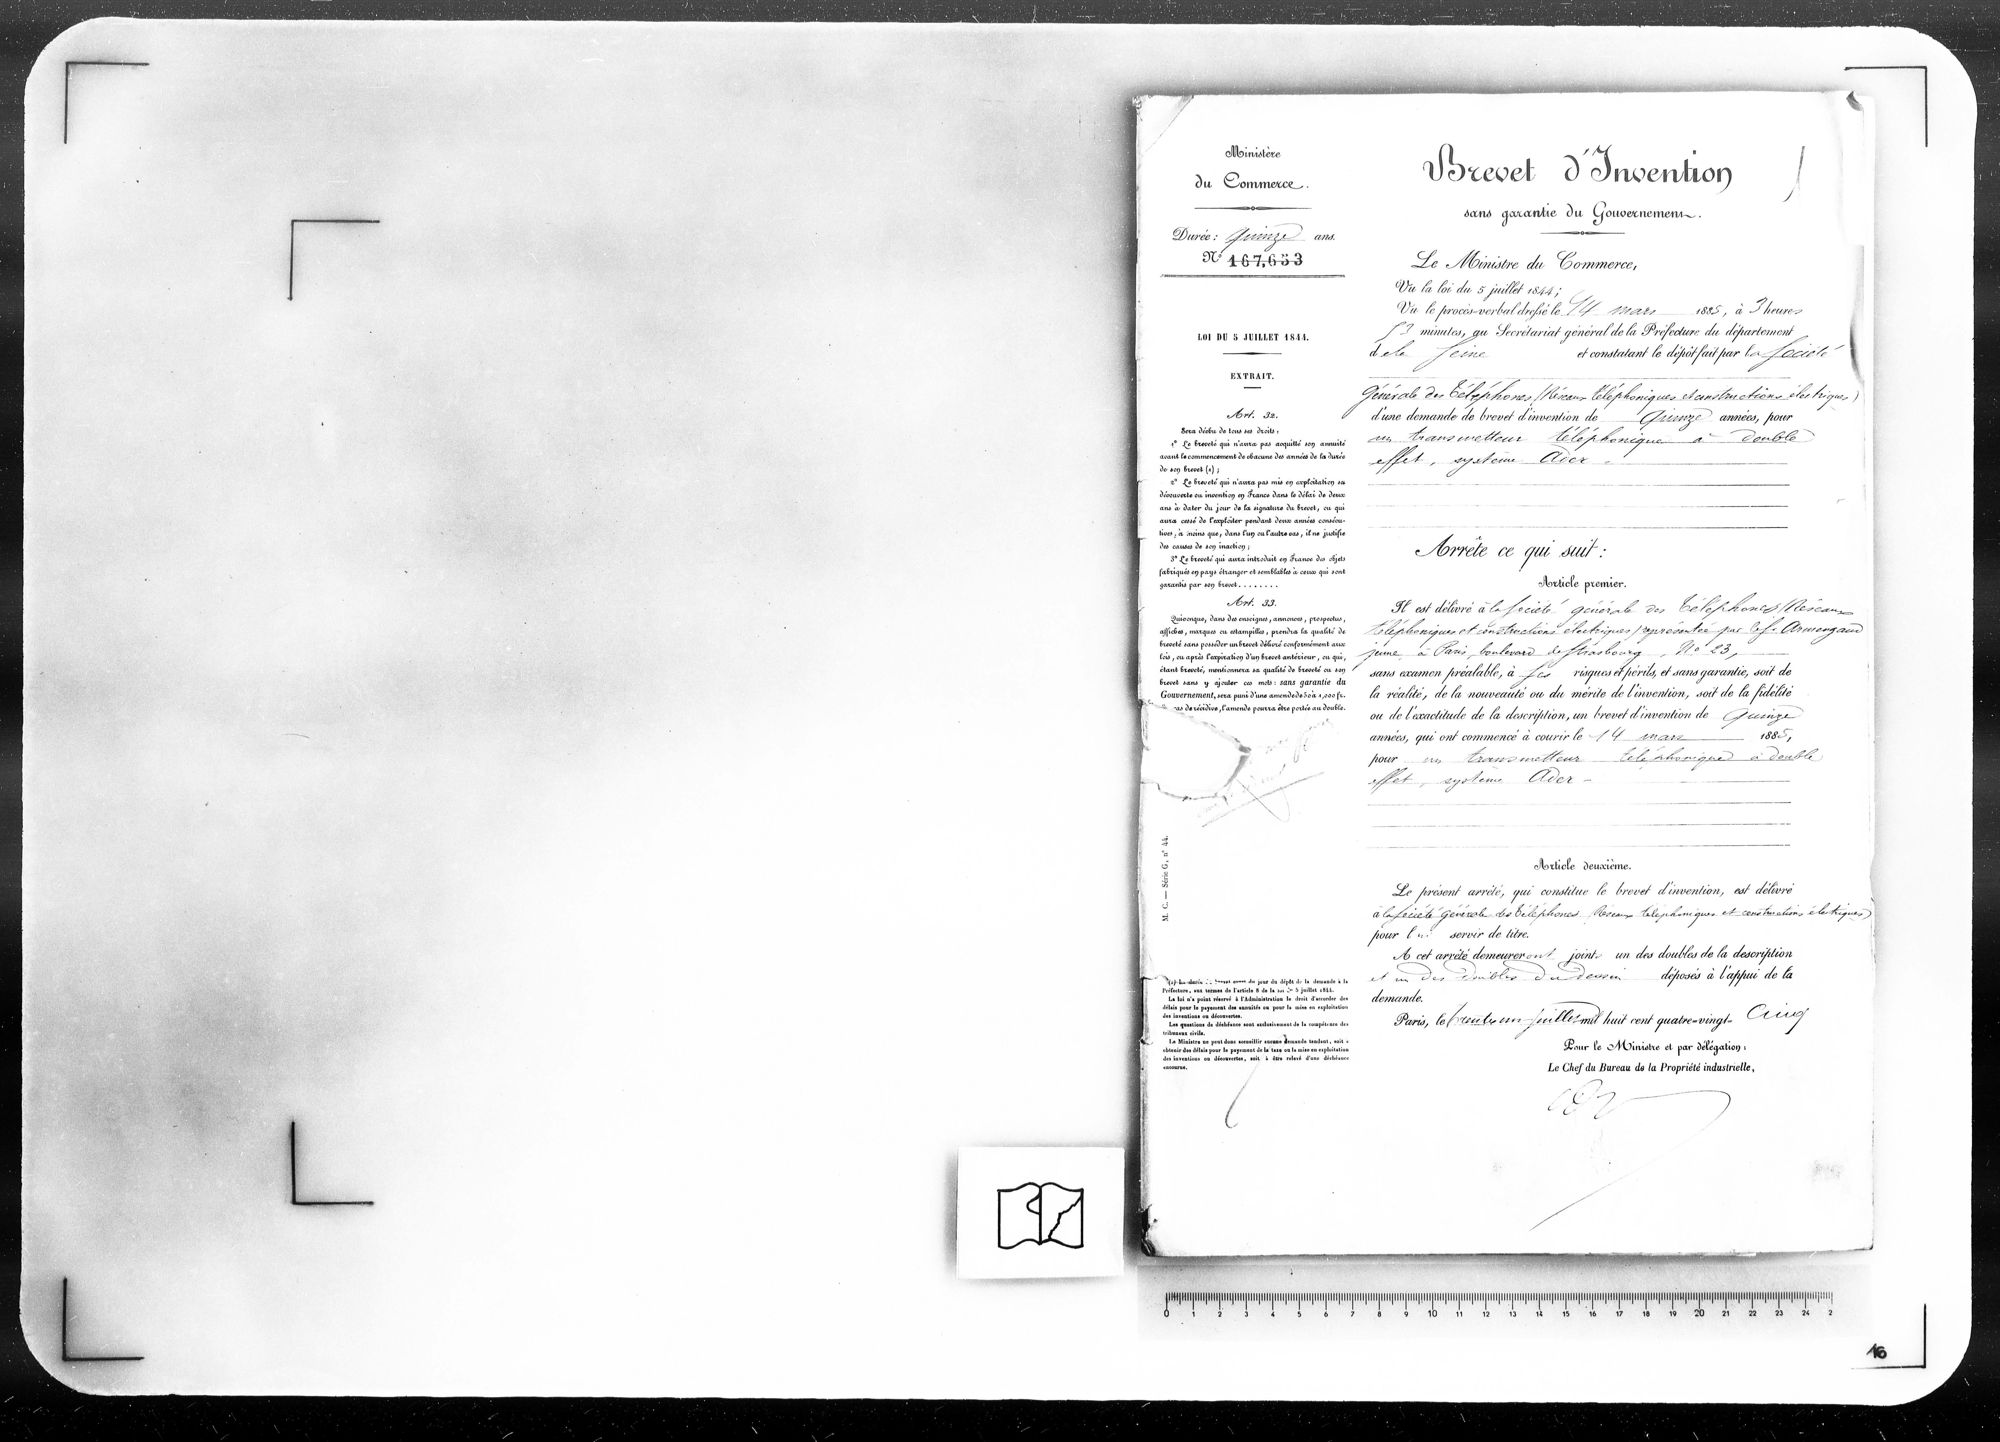 Ministère
du Commerce.
Durée : Quinze ans.
N° 167,653
LOI DU 5 JUILLET 1844.
EXTRAIT.
Art. 32.
Sera déchu de tous ses droits :
1° Le breveté qui n'aura pas acquitté son annuité
avant le commencement de chacune des années de la durée
de son brevet (1) ;
2° Le breveté qui n'aura pas mis en exploitation sa
découverte ou invention en France dans le délai de deux
ans à dater du jour de la signature du brevet, ou qui
aura cessé de l'exploiter pendant deux années consécu-
tives, à moins que, dans l'un ou l'autre cas, il ne justifie
des causes de son inaction ;
3° Le breveté qui aura introduit en France des objets
fabriqués en pays étranger et semblables à ceux qui sont
garantis par son brevet . . . . . . . .
Art. 33.
Quiconque, dans des enseignes, annonces, prospectus,
affiches, marques ou estampilles, prendra la qualité de
breveté sans posséder un brevet délivré conformément aux
lois, ou après l'expiration d'un brevet antérieur, ou qui,
étant breveté, mentionnera sa qualité de breveté ou son
brevet sans y ajouter ces mots : sans garantie du
Gouvernement, sera puni d'une amende de 50 à 1,000 fr.
cas de récidive, l'amende pourra être portée au double.
M. C. — Série G, n° 44.
du jour du dépôt de la demande à la
Préfecture, aux termes de l'article 8 de la loi du 5 juillet 1844.
La loi n'a point réservé à l'Administration le droit d'accorder des
délais pour le payement des annuités ou pour la mise en exploitation
des inventions ou découvertes.
Les questions de déchéance sont exclusivement de la compétence des
tribunaux civils.
Le Ministre ne peut donc accueillir aucune demande tendant, soit à
obtenir des délais pour le payement de la taxe ou la mise en exploitation
des inventions ou découvertes, soit à être relevé d'une déchéance
encourue.
Brevet d'Invention
sans garantie du Gouvernement.
Le Ministre du Commerce,
Vu la loi du 5 juillet 1844 ;
Vu le procès-verbal dressé le 14 mars 1885, à 3 heures
53 minutes, au Secrétariat général de la Préfecture du département
de la Seine et constatant le dépôt fait par la Société
Générale des Téléphones (Réseaux téléphoniques et constructions électriques)
d'une demande de brevet d'invention de Quinze années, pour
un transmetteur téléphonique à double
effet, système Ader.
Arrête ce qui suit :
Article premier.
Il est délivré à la Société générale des Téléphones (Réseaux
téléphoniques et constructions électriques) représentée par le Sr Armengaud
jeune, à Paris, boulevard de Strasbourg, N° 23,
sans examen préalable, à ses risques et périls, et sans garantie, soit de
la réalité, de la nouveauté ou du mérite de l'invention, soit de la fidélité
ou de l'exactitude de la description, un brevet d'invention de quinze
années, qui ont commencé à courir le 14 mars 1885,
pour un transmetteur téléphonique à double
effet, système Ader
Article deuxième.
Le présent arrêté, qui constitue le brevet d'invention, est délivré
à la Société générale des Téléphones (Réseaux téléphoniques et constructions électriques)
pour lui servir de titre.
A cet arrêté demeureront joints un des doubles de la description
et un des doubles du dessin déposés à l'appui de la
demande.
Paris, le trente un juillet mil huit cent quatre-vingt-Cinq
Pour le Ministre et par délégation :
Le Chef du Bureau de la Propriété industrielle,
0 1 2 3 4 5 6 7 8 9 10 11 12 13 14 15 16 17 18 19 20 21 22 23 24 2
16